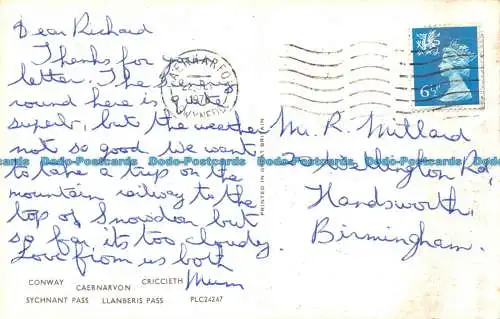 Dear Richard
Thanks for your
letter. The scenery
round here is quite
superb, but the weather
not so good. We want
to take a trip on the
mountain railway to the
top of Snowdon, but
so far, its too cloudy.
Love from us both
Mum
CONWAY CAERNARVON CRICCIETH
SYCHNANT PASS LLANBERIS PASS PLC24247
PRINTED IN GREAT BRITAIN
6½P
Mr. R. Millard
Wellington Rd,
Handsworth,
Birmingham.
Bodo-Postcards Bodo-Postcards Bodo-Postcards Bodo-Postcards